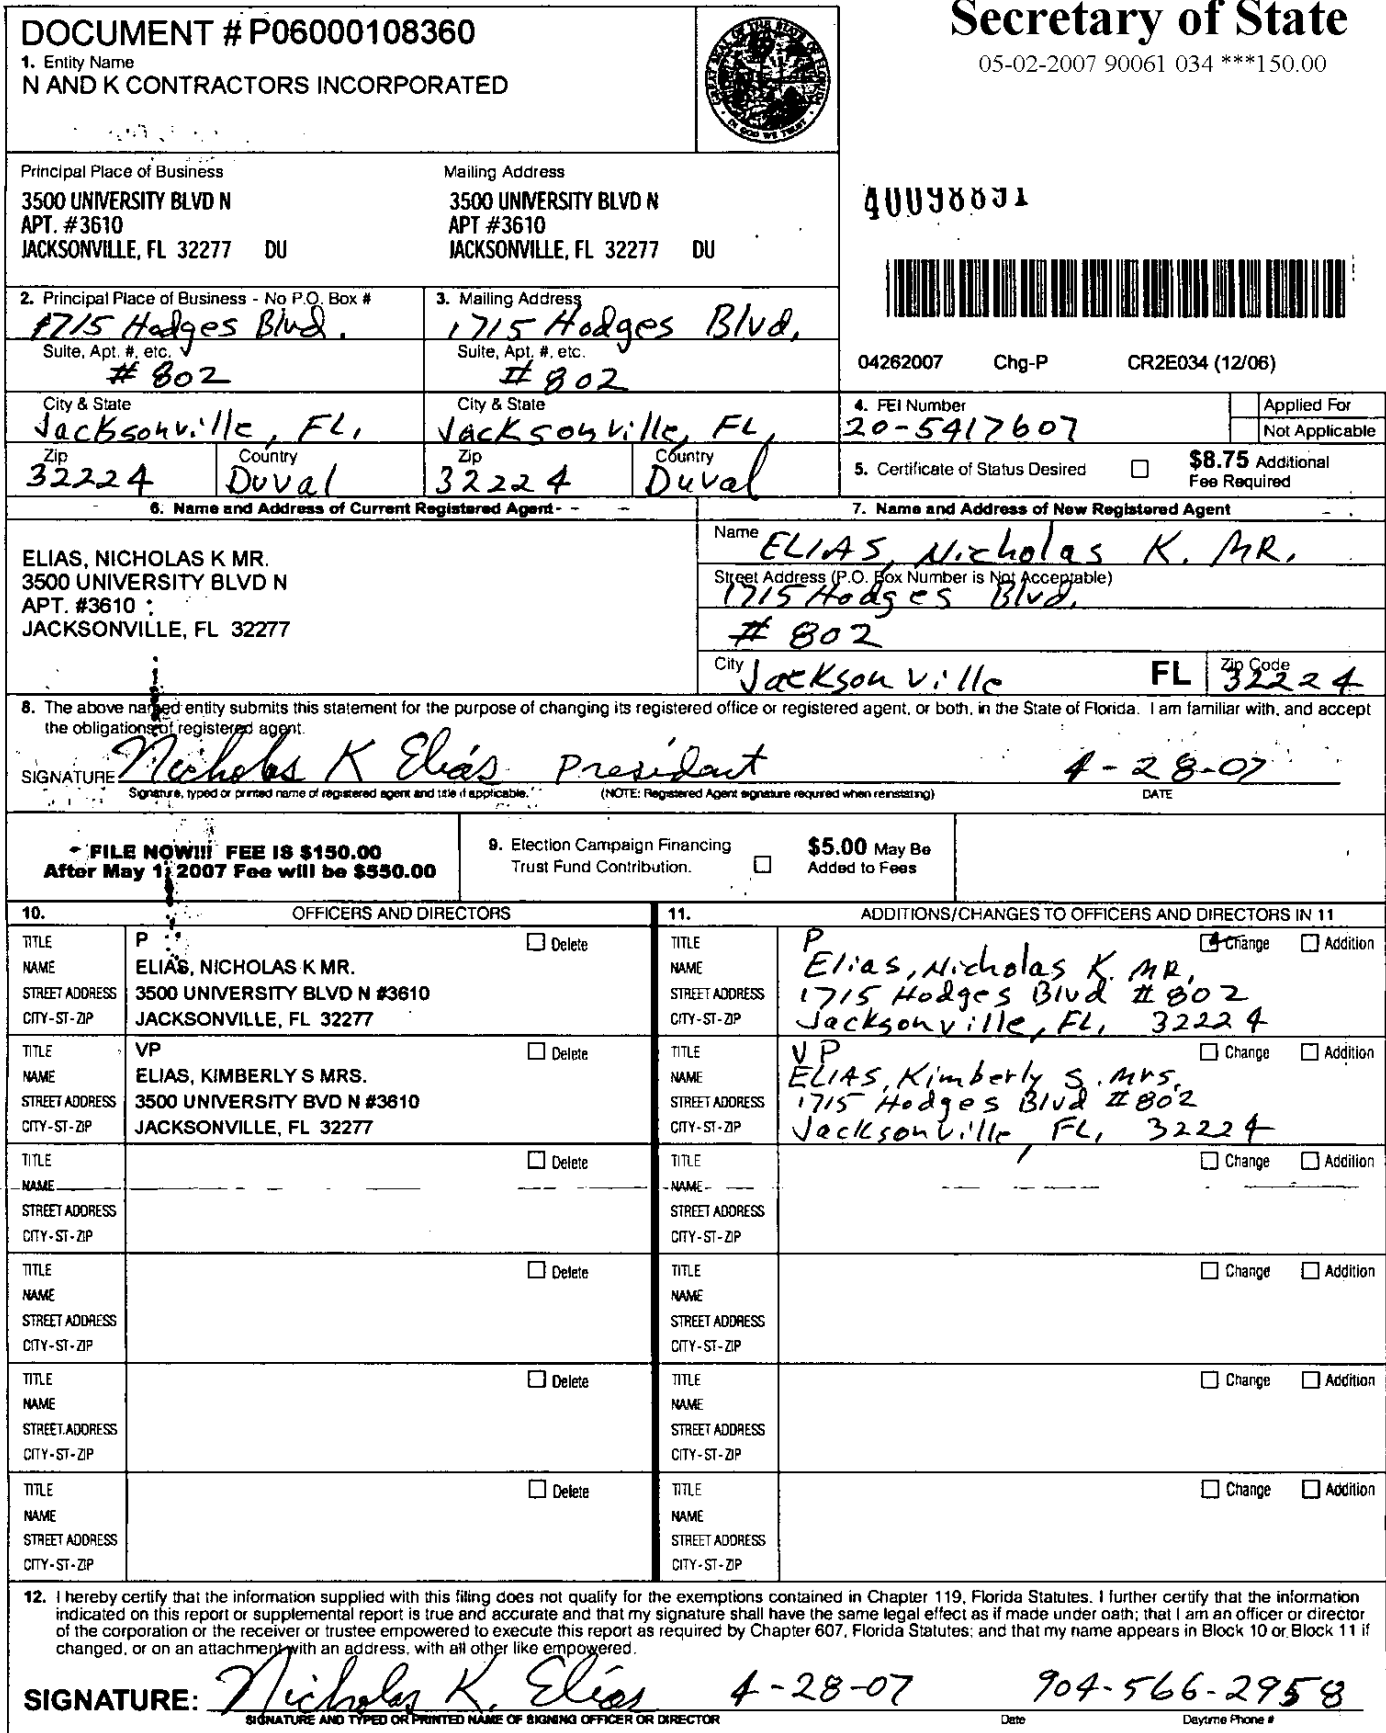 DOCUMENT # P06000108360
1. Entity Name
N AND K CONTRACTORS INCORPORATED
Secretary of State
05-02-2007 90061 034 ***150.00
Principal Place of Business
3500 UNIVERSITY BLVD N
APT. #3610
JACKSONVILLE, FL 32277 DU
Mailing Address
3500 UNIVERSITY BLVD N
APT #3610
JACKSONVILLE, FL 32277 DU
2. Principal Place of Business - No P.O. Box #
1715 Hodges Blvd.
Suite, Apt. #, etc.
# 802
City & State
Jacksonville, FL,
Zip
32224
Country
Duval
3. Mailing Address
1715 Hodges Blvd,
Suite, Apt. #, etc.
# 802
City & State
Jacksonville, FL,
Zip
32224
Country
Duval
04262007 Chg-P CR2E034 (12/06)
4. FEI Number
20-5417607
Applied For
Not Applicable
5. Certificate of Status Desired
$8.75 Additional
Fee Required
6. Name and Address of Current Registered Agent
ELIAS, NICHOLAS K MR.
3500 UNIVERSITY BLVD N
APT. #3610
JACKSONVILLE, FL 32277
7. Name and Address of New Registered Agent
Name ELIAS, Nicholas K. MR.
Street Address (P.O. Box Number is Not Acceptable)
1715 Hodges Blvd.
# 802
City Jacksonville FL Zip Code 32224
8. The above named entity submits this statement for the purpose of changing its registered office or registered agent, or both, in the State of Florida. I am familiar with, and accept
the obligations of registered agent.
SIGNATURE Nicholas K Elias President 4-28-07
Signature, typed or printed name of registered agent and title if applicable. (NOTE: Registered Agent signature required when reinstating) DATE
FILE NOW!!! FEE IS $150.00
After May 1, 2007 Fee will be $550.00
9. Election Campaign Financing
Trust Fund Contribution.
$5.00 May Be
Added to Fees
10. OFFICERS AND DIRECTORS
TITLE P Delete
NAME ELIAS, NICHOLAS K MR.
STREET ADDRESS 3500 UNIVERSITY BLVD N #3610
CITY-ST-ZIP JACKSONVILLE, FL 32277
TITLE VP Delete
NAME ELIAS, KIMBERLY S MRS.
STREET ADDRESS 3500 UNIVERSITY BVD N #3610
CITY-ST-ZIP JACKSONVILLE, FL 32277
TITLE Delete
NAME
STREET ADDRESS
CITY-ST-ZIP
TITLE Delete
NAME
STREET ADDRESS
CITY-ST-ZIP
TITLE Delete
NAME
STREET ADDRESS
CITY-ST-ZIP
TITLE Delete
NAME
STREET ADDRESS
CITY-ST-ZIP
11. ADDITIONS/CHANGES TO OFFICERS AND DIRECTORS IN 11
TITLE P Change Addition
NAME Elias, Nicholas K. MR,
STREET ADDRESS 1715 Hodges Blvd #802
CITY-ST-ZIP Jacksonville, FL, 32224
TITLE VP Change Addition
NAME ELIAS, Kimberly S. Mrs,
STREET ADDRESS 1715 Hodges Blvd #802
CITY-ST-ZIP Jacksonville, FL, 32224
TITLE Change Addition
NAME
STREET ADDRESS
CITY-ST-ZIP
TITLE Change Addition
NAME
STREET ADDRESS
CITY-ST-ZIP
TITLE Change Addition
NAME
STREET ADDRESS
CITY-ST-ZIP
TITLE Change Addition
NAME
STREET ADDRESS
CITY-ST-ZIP
12. I hereby certify that the information supplied with this filing does not qualify for the exemptions contained in Chapter 119, Florida Statutes. I further certify that the information
indicated on this report or supplemental report is true and accurate and that my signature shall have the same legal effect as if made under oath; that I am an officer or director
of the corporation or the receiver or trustee empowered to execute this report as required by Chapter 607, Florida Statutes; and that my name appears in Block 10 or Block 11 if
changed, or on an attachment with an address, with all other like empowered.
SIGNATURE: Nicholas K. Elias 4-28-07 904-566-2958
SIGNATURE AND TYPED OR PRINTED NAME OF SIGNING OFFICER OR DIRECTOR Date Daytime Phone #